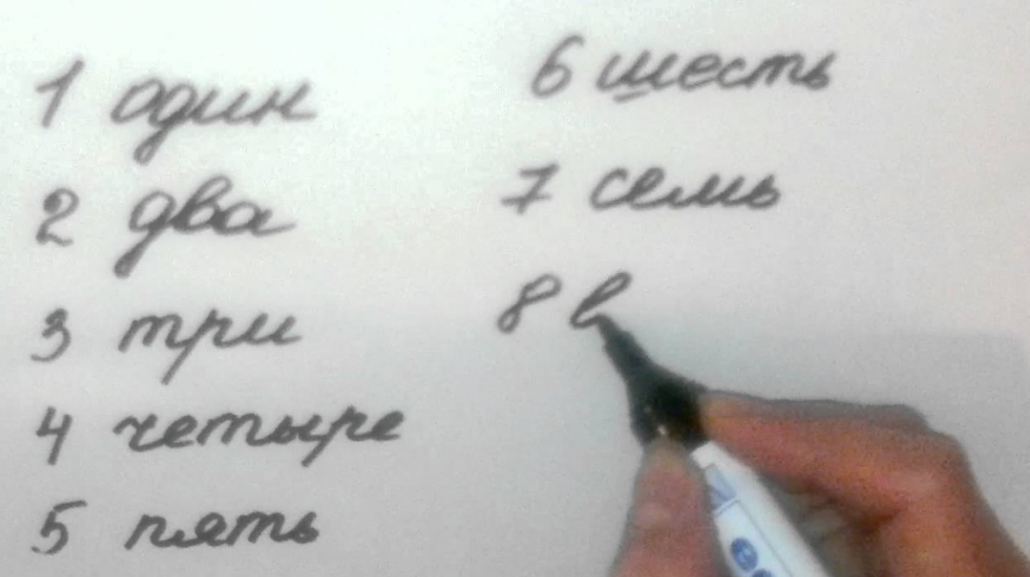 1 один
2 два
3 три
4 четыре
5 пять
6 шесть
7 семь
8 в